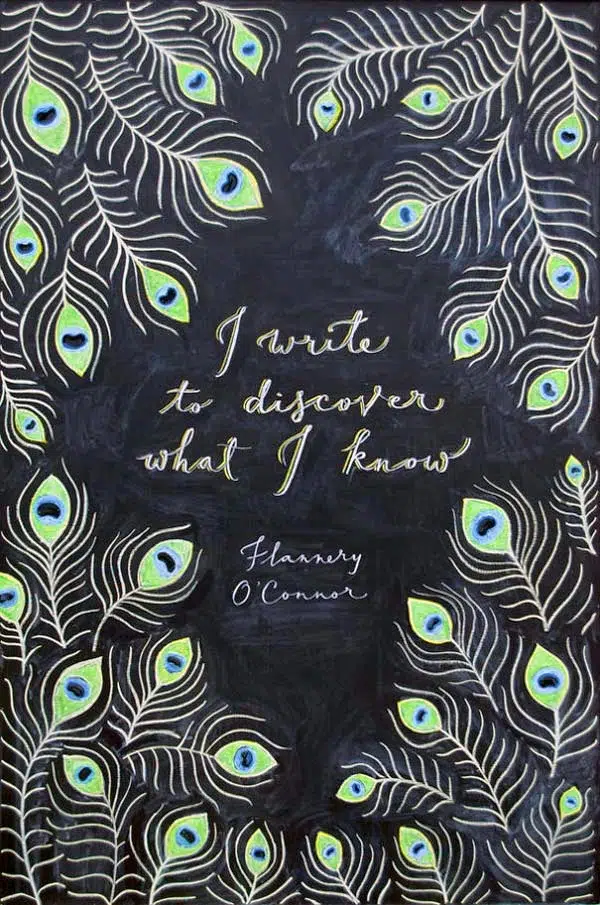 I write
to discover
what I know
Flannery
O'Connor